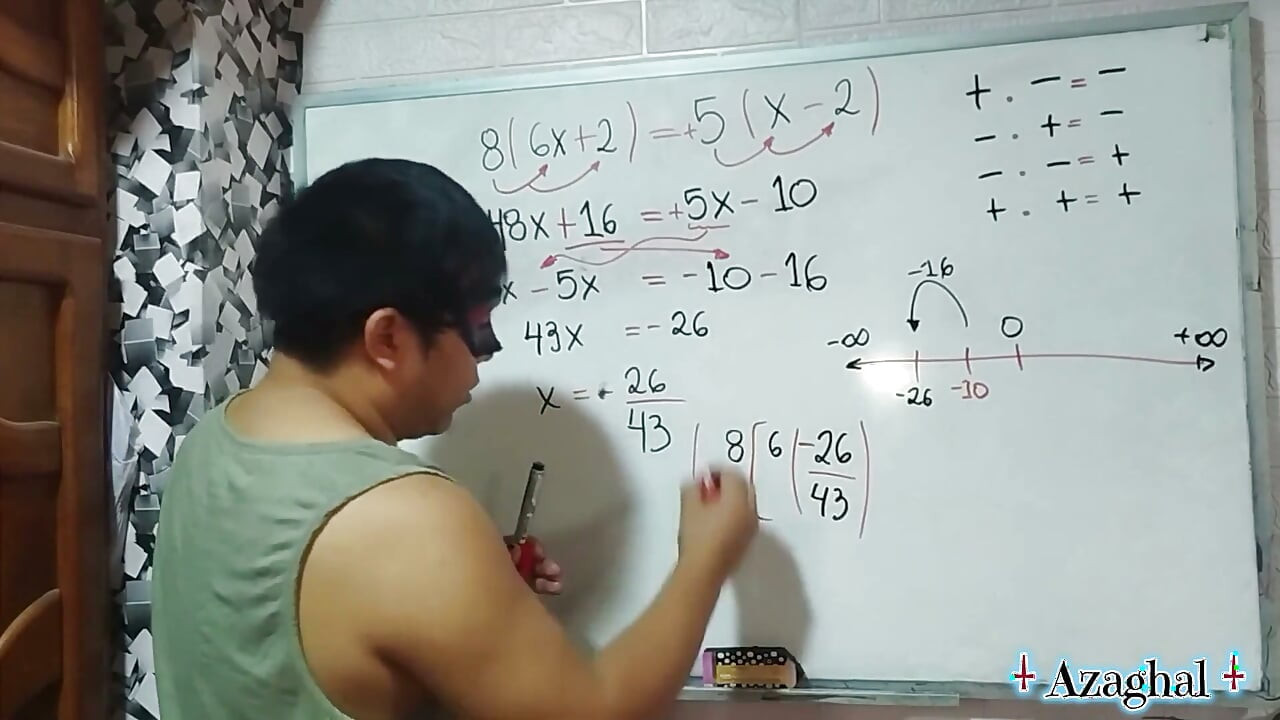 8(6x+2) = +5(x-2)
48x+16 = +5x-10
x-5x = -10-16
43x = -26
x = - 26/43
8[6(-26/43)
+ . - = -
- . + = -
- . - = +
+ . + = +
-16
-∞ 0 +∞
-26 -10
Azaghal